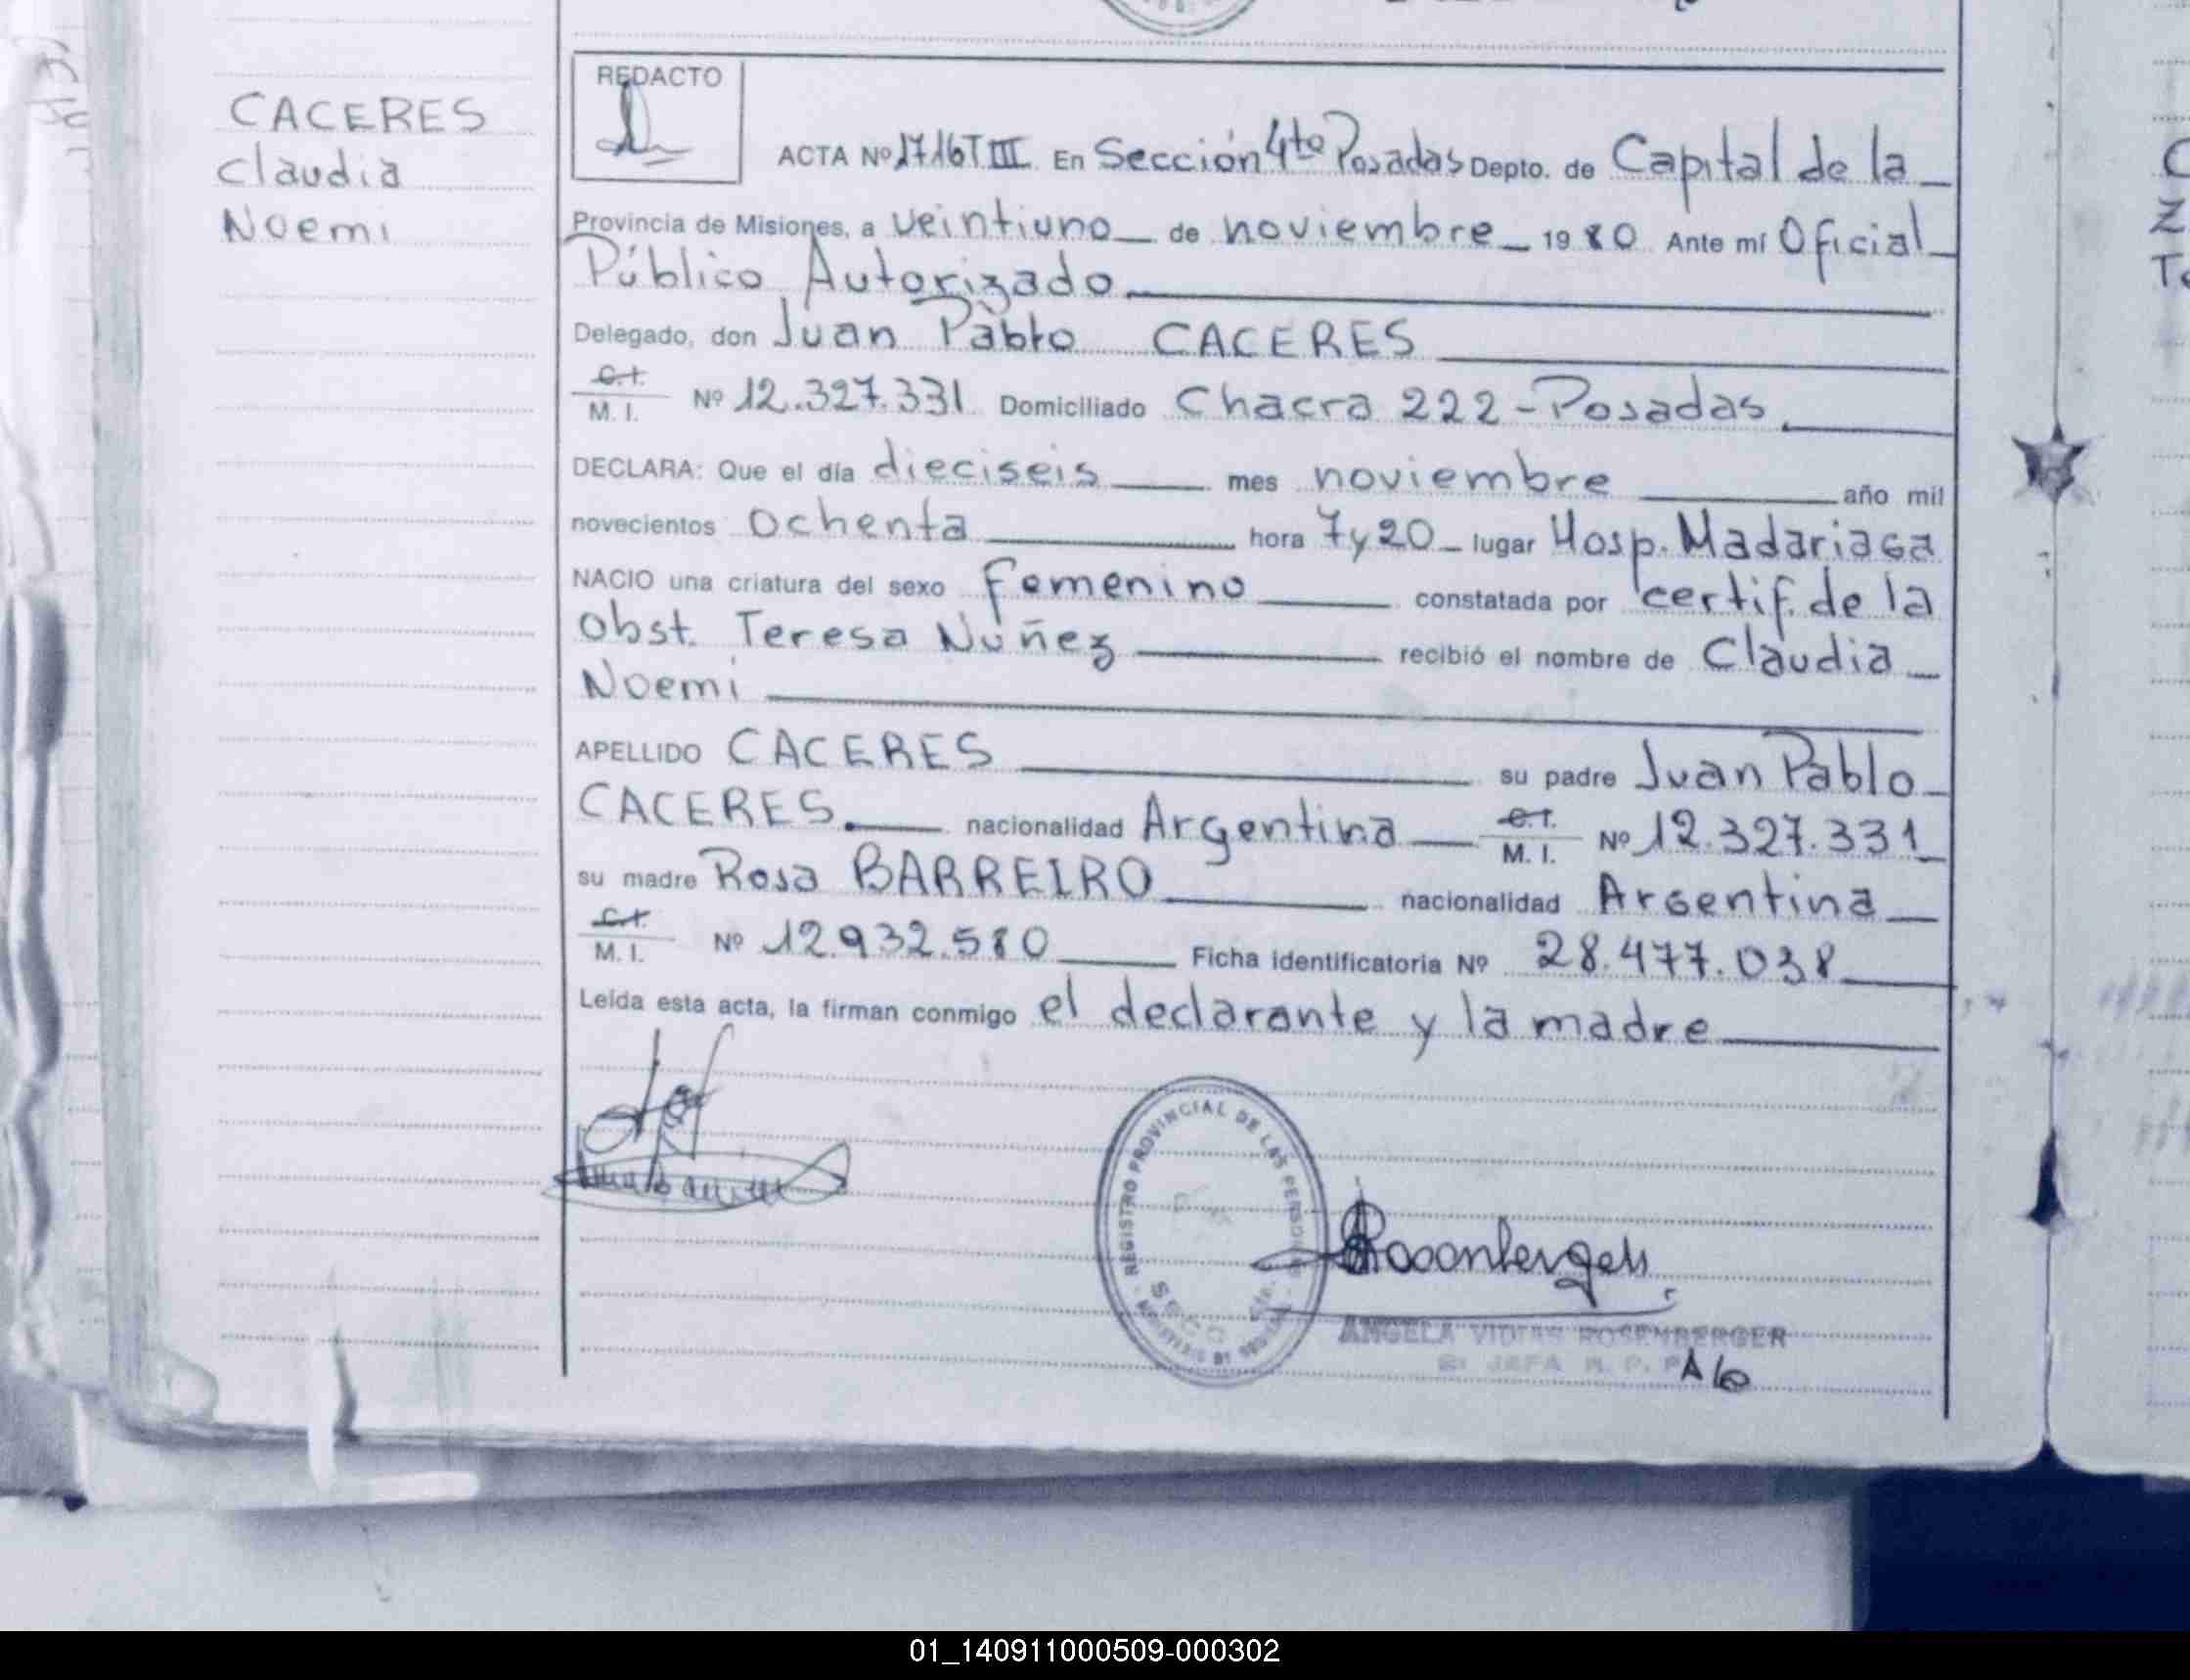 CACERES
Claudia
Noemi
REDACTO
ACTA Nº 1716 T III En Sección 4to Posadas Depto. de Capital de la
Provincia de Misiones, a veintiuno de noviembre 1980 Ante mí Oficial
Público Autorizado
Delegado, don Juan Pablo CACERES
C.I.
M. I. Nº 12.327.331 Domiciliado Chacra 222 - Posadas
DECLARA: Que el día dieciseis mes noviembre año mil
novecientos ochenta hora 7 y 20 lugar Hosp. Madariaga
NACIO una criatura del sexo femenino constatada por certif. de la
Obst. Teresa Nuñez recibió el nombre de Claudia
Noemi
APELLIDO CACERES su padre Juan Pablo
CACERES. nacionalidad Argentina C.I. M. I. Nº 12.327.331
su madre Rosa BARREIRO nacionalidad Argentina
C.I.
M. I. Nº 12.932.580 Ficha identificatoria Nº 28.477.038
Leída esta acta, la firman conmigo el declarante y la madre
REGISTRO PROVINCIAL DE LAS PERSONAS
ANGELA ROSENBERGER
JEFA R. P. P.
01_140911000509-000302